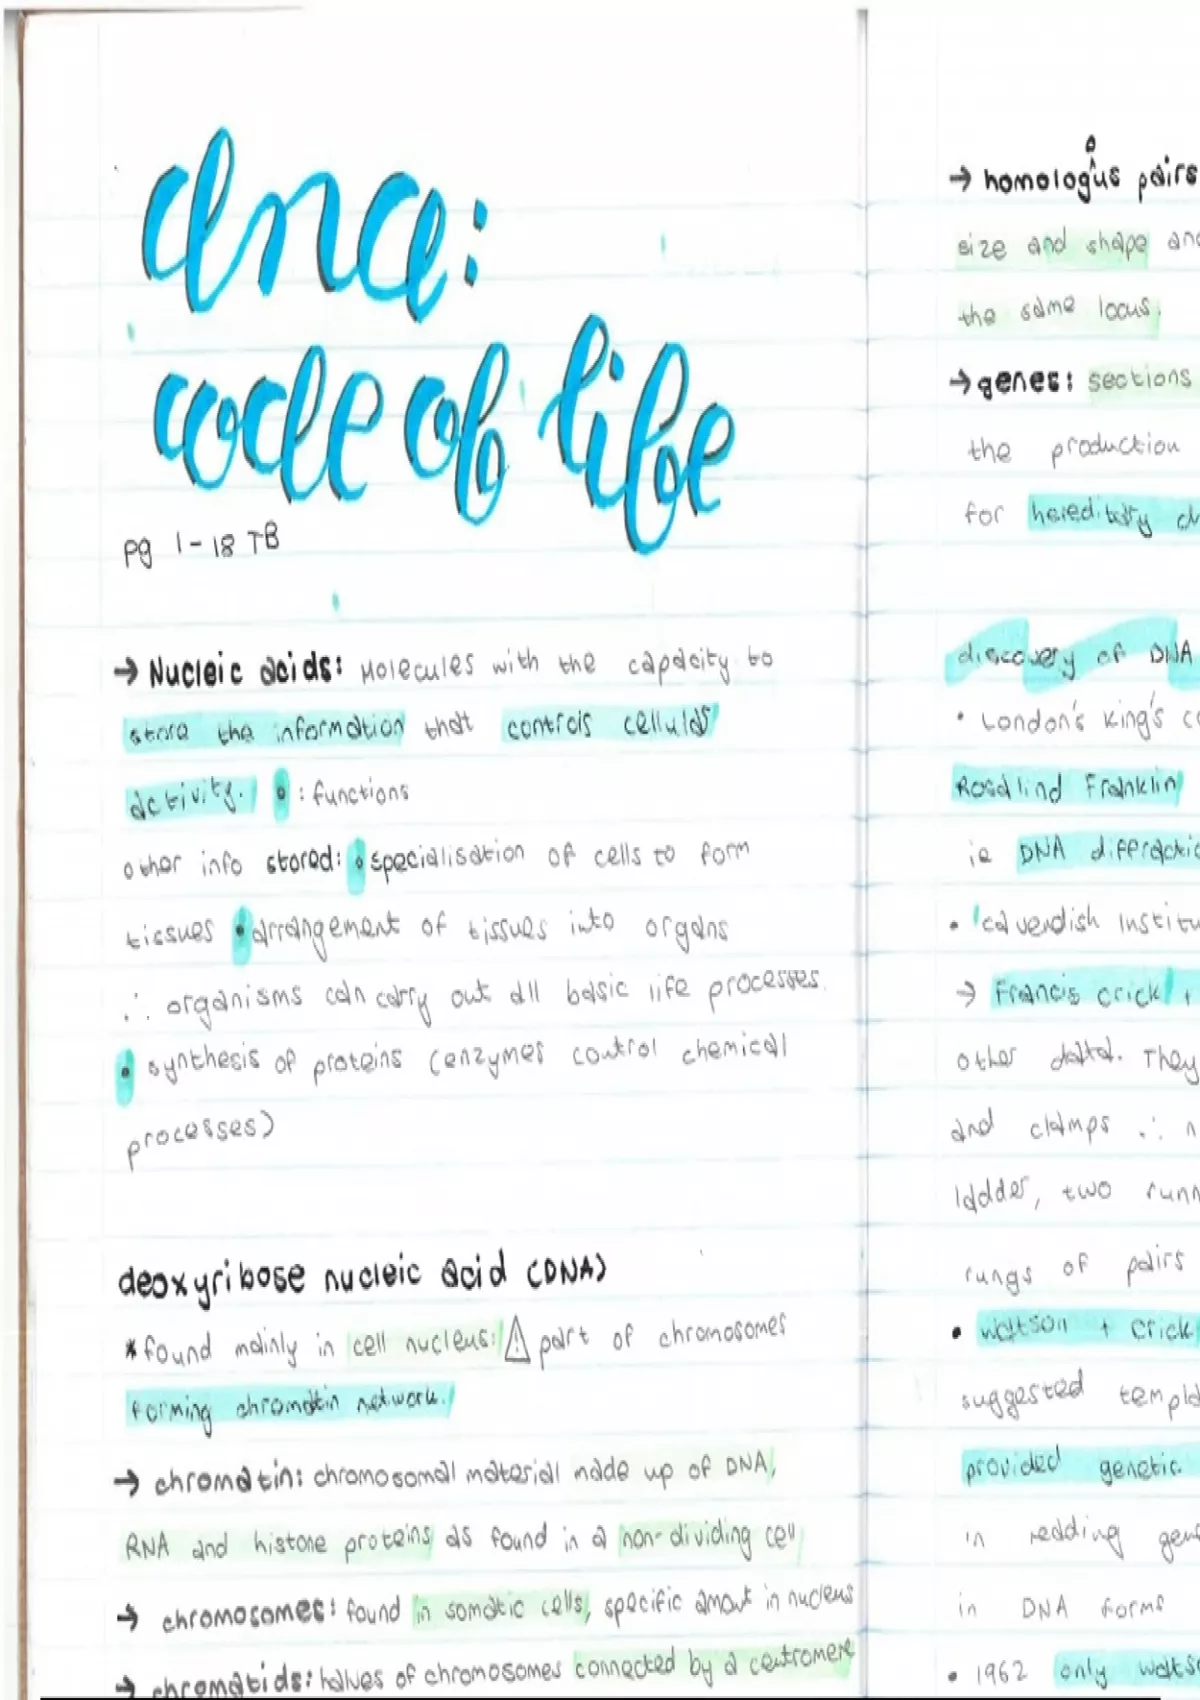 dna:
code of life
pg 1-18 TB
→ Nucleic acids: Molecules with the capacity to
store the information that controls cellular
activity. • : functions
other info stored: • specialisation of cells to form
tissues • arrangement of tissues into organs
∴ organisms can carry out all basic life processes.
• synthesis of proteins (enzymes control chemical
processes)
deoxyribose nucleic acid (DNA)
* found mainly in cell nucleus: ⚠ part of chromosomes
forming chromatin network.
→ chromatin: chromosomal material made up of DNA,
RNA and histone proteins as found in a non-dividing cell
→ chromosomes: found in somatic cells, specific amout in nucleus
→ chromatids: halves of chromosomes connected by a centromere
→ homologus pairs
o
size and shape and
the same locus.
→ genes: sections
the production
for hereditary
discovery of DNA
• London's King's
Rosalind Franklin
ie DNA
• Cavendish
→ Francis Crick +
other data. They
and clamps ∴
ladder, two
rungs of pairs
• Watson + Crick
suggested
provided genetic
in reading
in DNA forms
• 1962 only